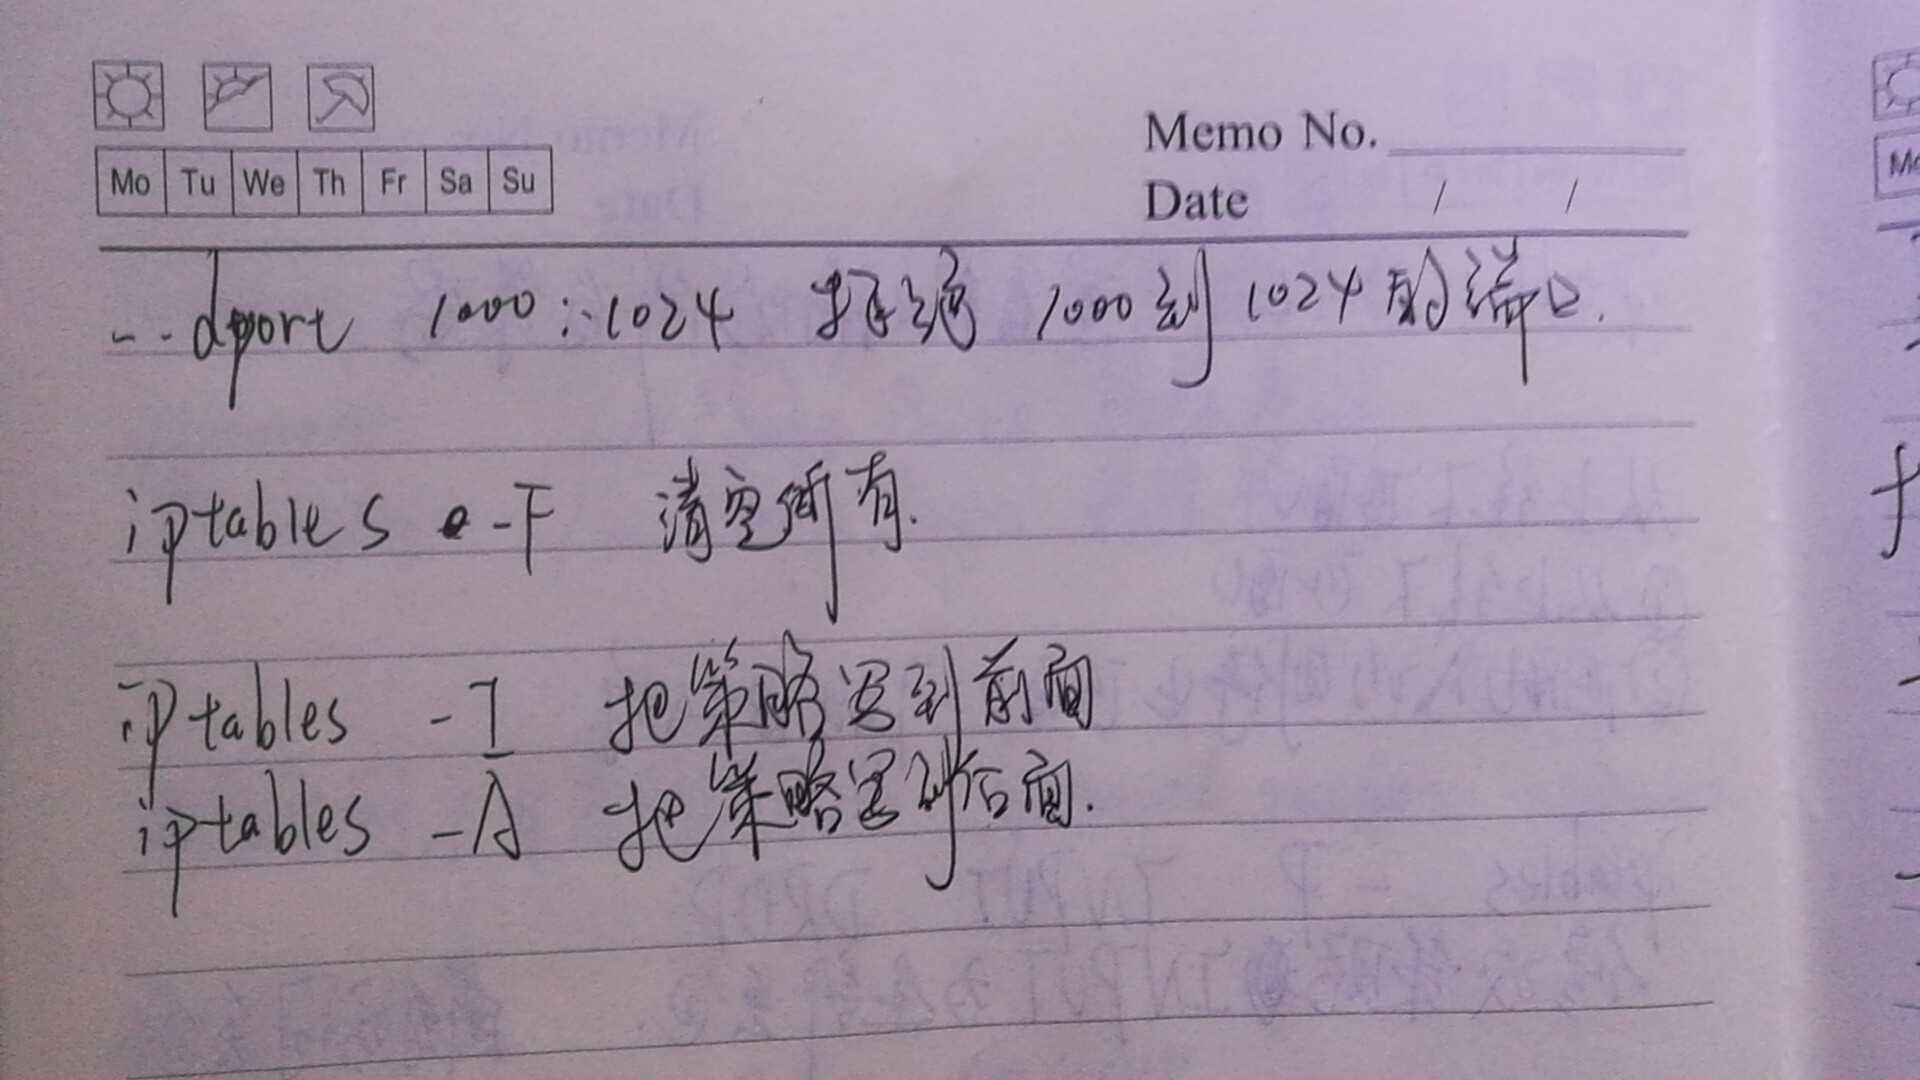 Memo No.
Mo Tu We Th Fr Sa Su
Date / /
--dport 1000:1024 打通 1000到1024的端口.
iptables -F 清空所有.
iptables -I 把策略写到前面
iptables -A 把策略写到后面.